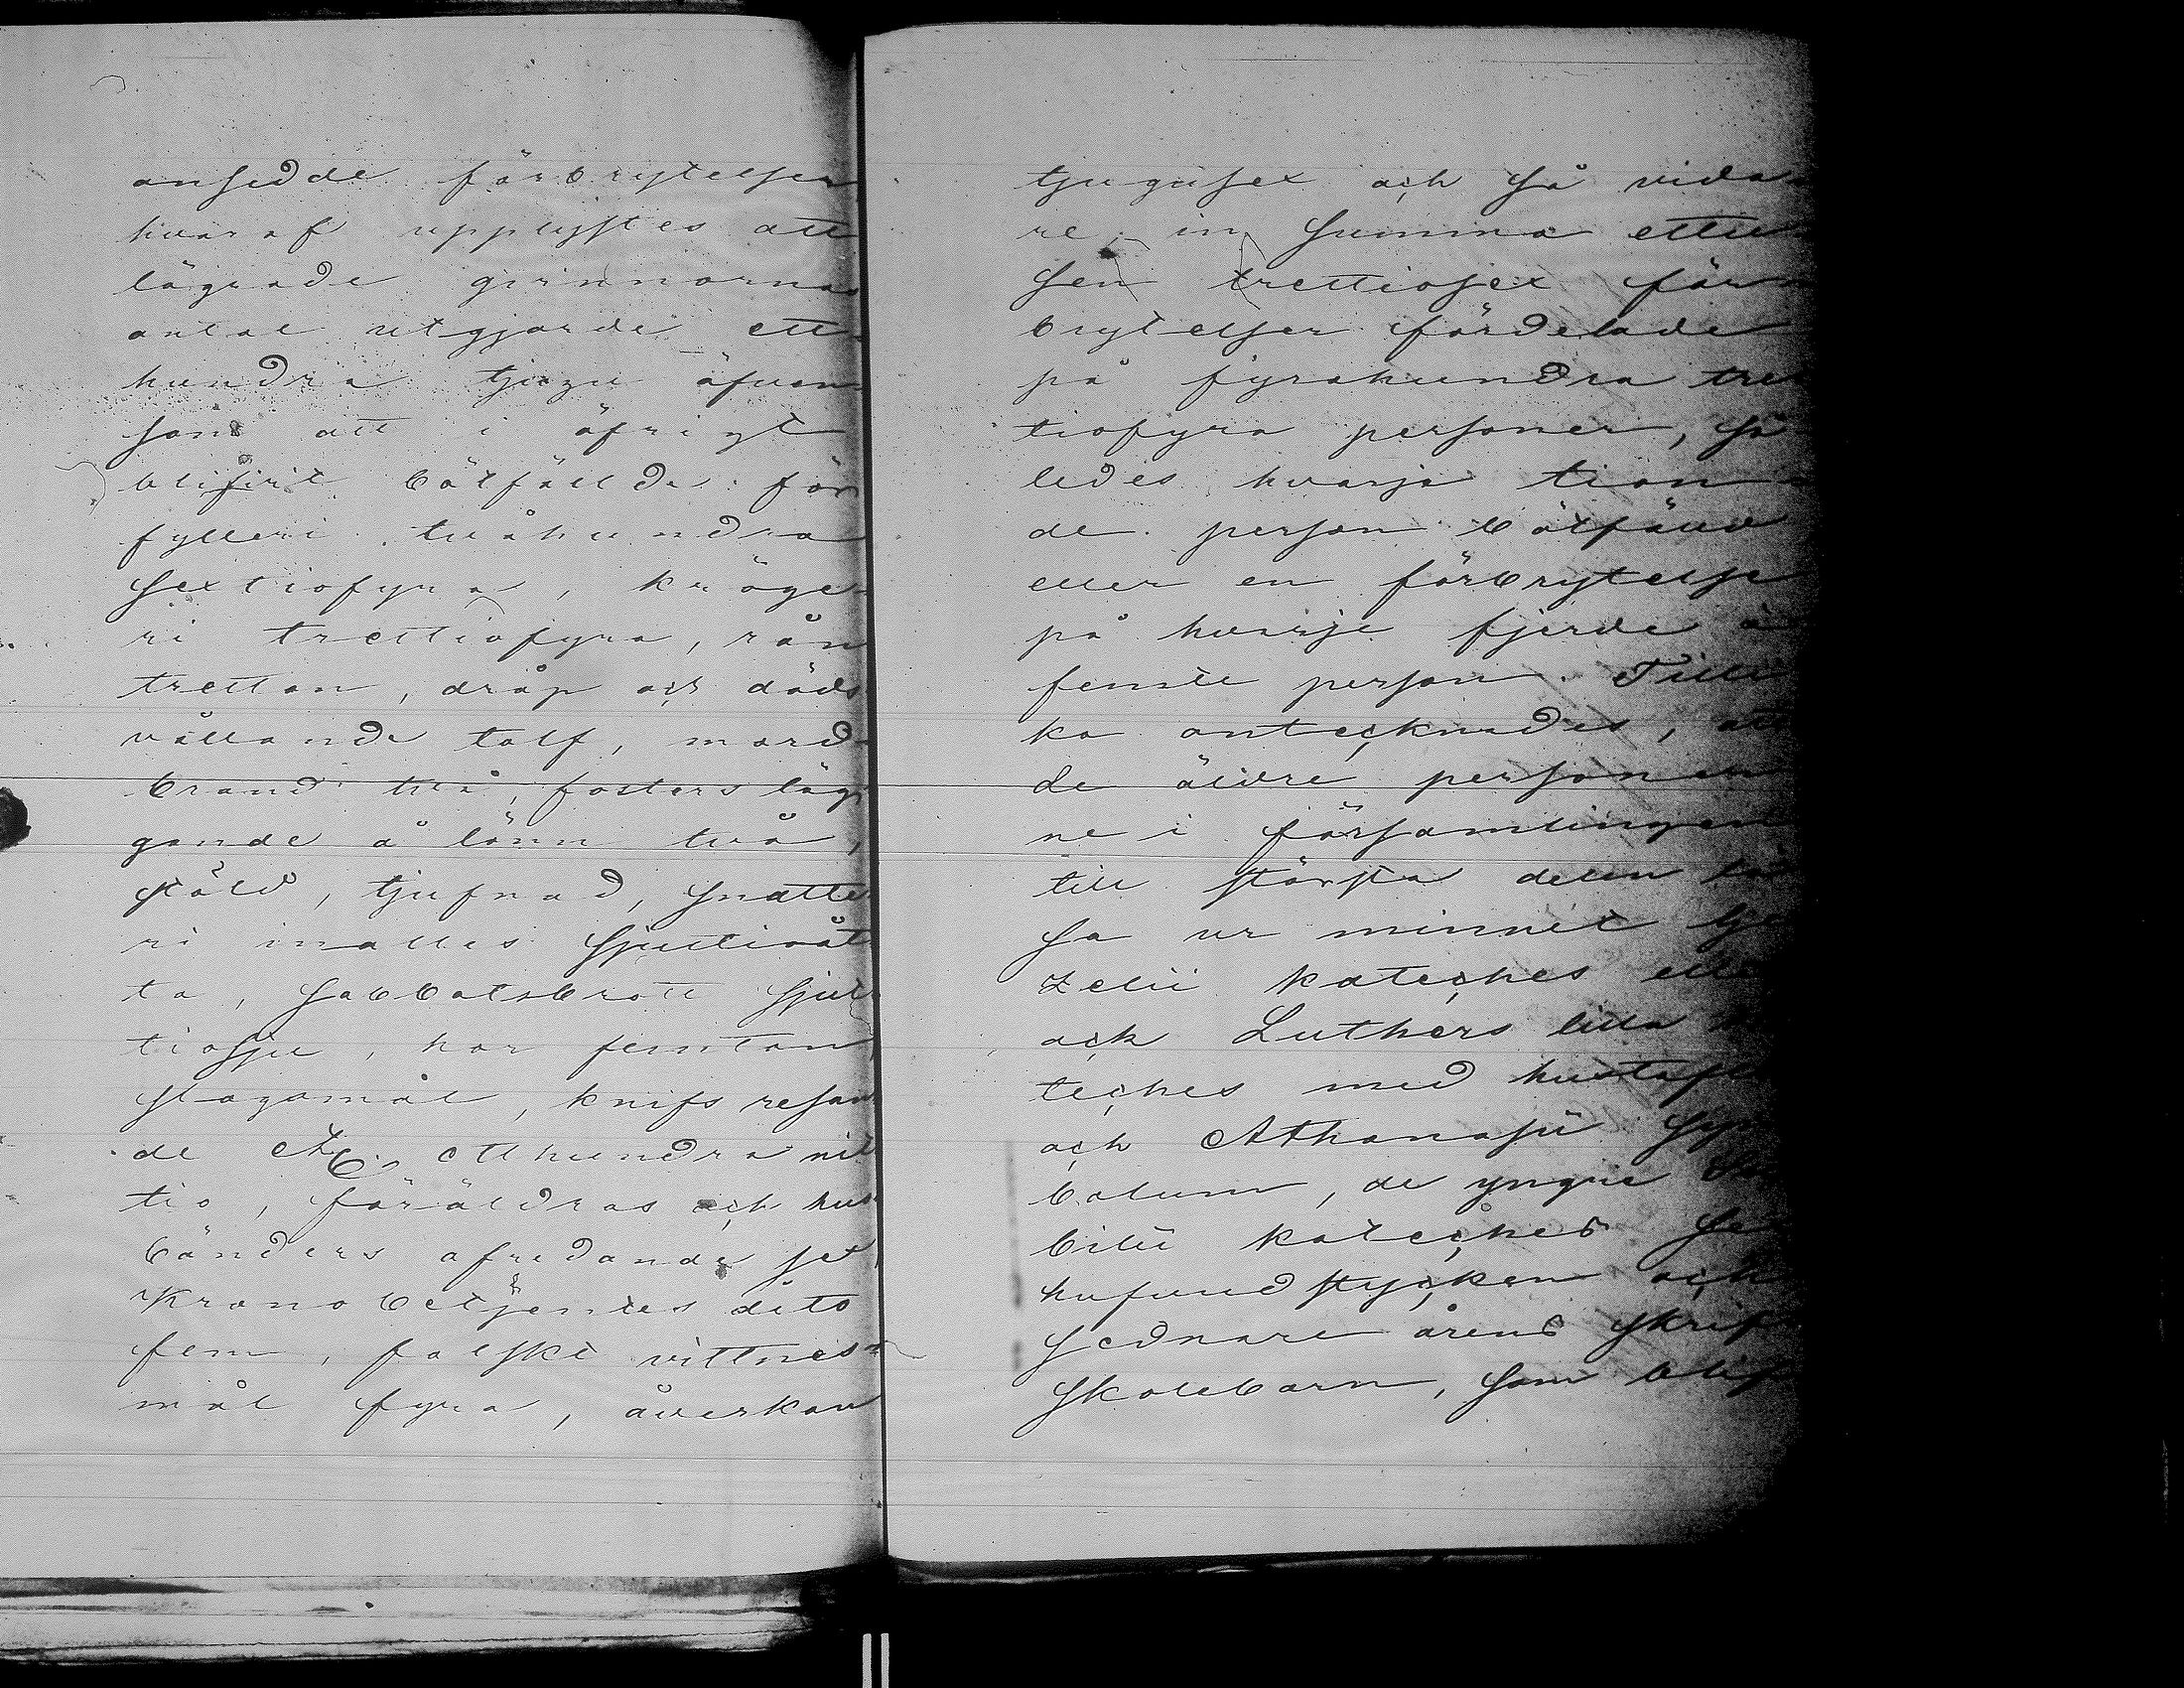 ansedde förbrytelser
hvaraf upplystes att
lägrade qvinnornas
antal utgjorde ett
hundra tjugu äfven
som att i öfrigt
blifvit bötfällda för
fylleri tvåhundra
sextiofyra, kröge-
ri trettiofyra, rån
tretton, dråp och döds
vållande tolf, mord-
brand två, fosters läg
gande å lönn två,
stöld, tjufnad, snatte
ri inalles sjuttioåt
ta, sabbatsbrott sjut
tiosju, hor femton
slagsmål, knifs resan
de &c. etthundra nit
tio, föräldras och hus
bönders ofredande sex
Kronobetjentes dito
fem, falskt vittnes-
mål fyra, åverkan
tjugusex och så vida-
re, in summa ettu
sen trettiosex för-
brytelser fördelade
på fyrahundra tret
tiofyra personer, så
ledes hvarje tion
de person bötfälld
eller en förbrytelse
på hvarje fjerde à
femte person. Tillï
ka antecknades, att
de äldre personer
ne i församlingen
till största delen lä
sa ur minnet Ge
zelii kateches eller
ock Luthers lilla ka
teches med hustafla
och Athanasii Sym
bolum, de yngre Sve
bilii kateches se
hufvudstycken och
sednare årens skrift
skolebarn, som blif